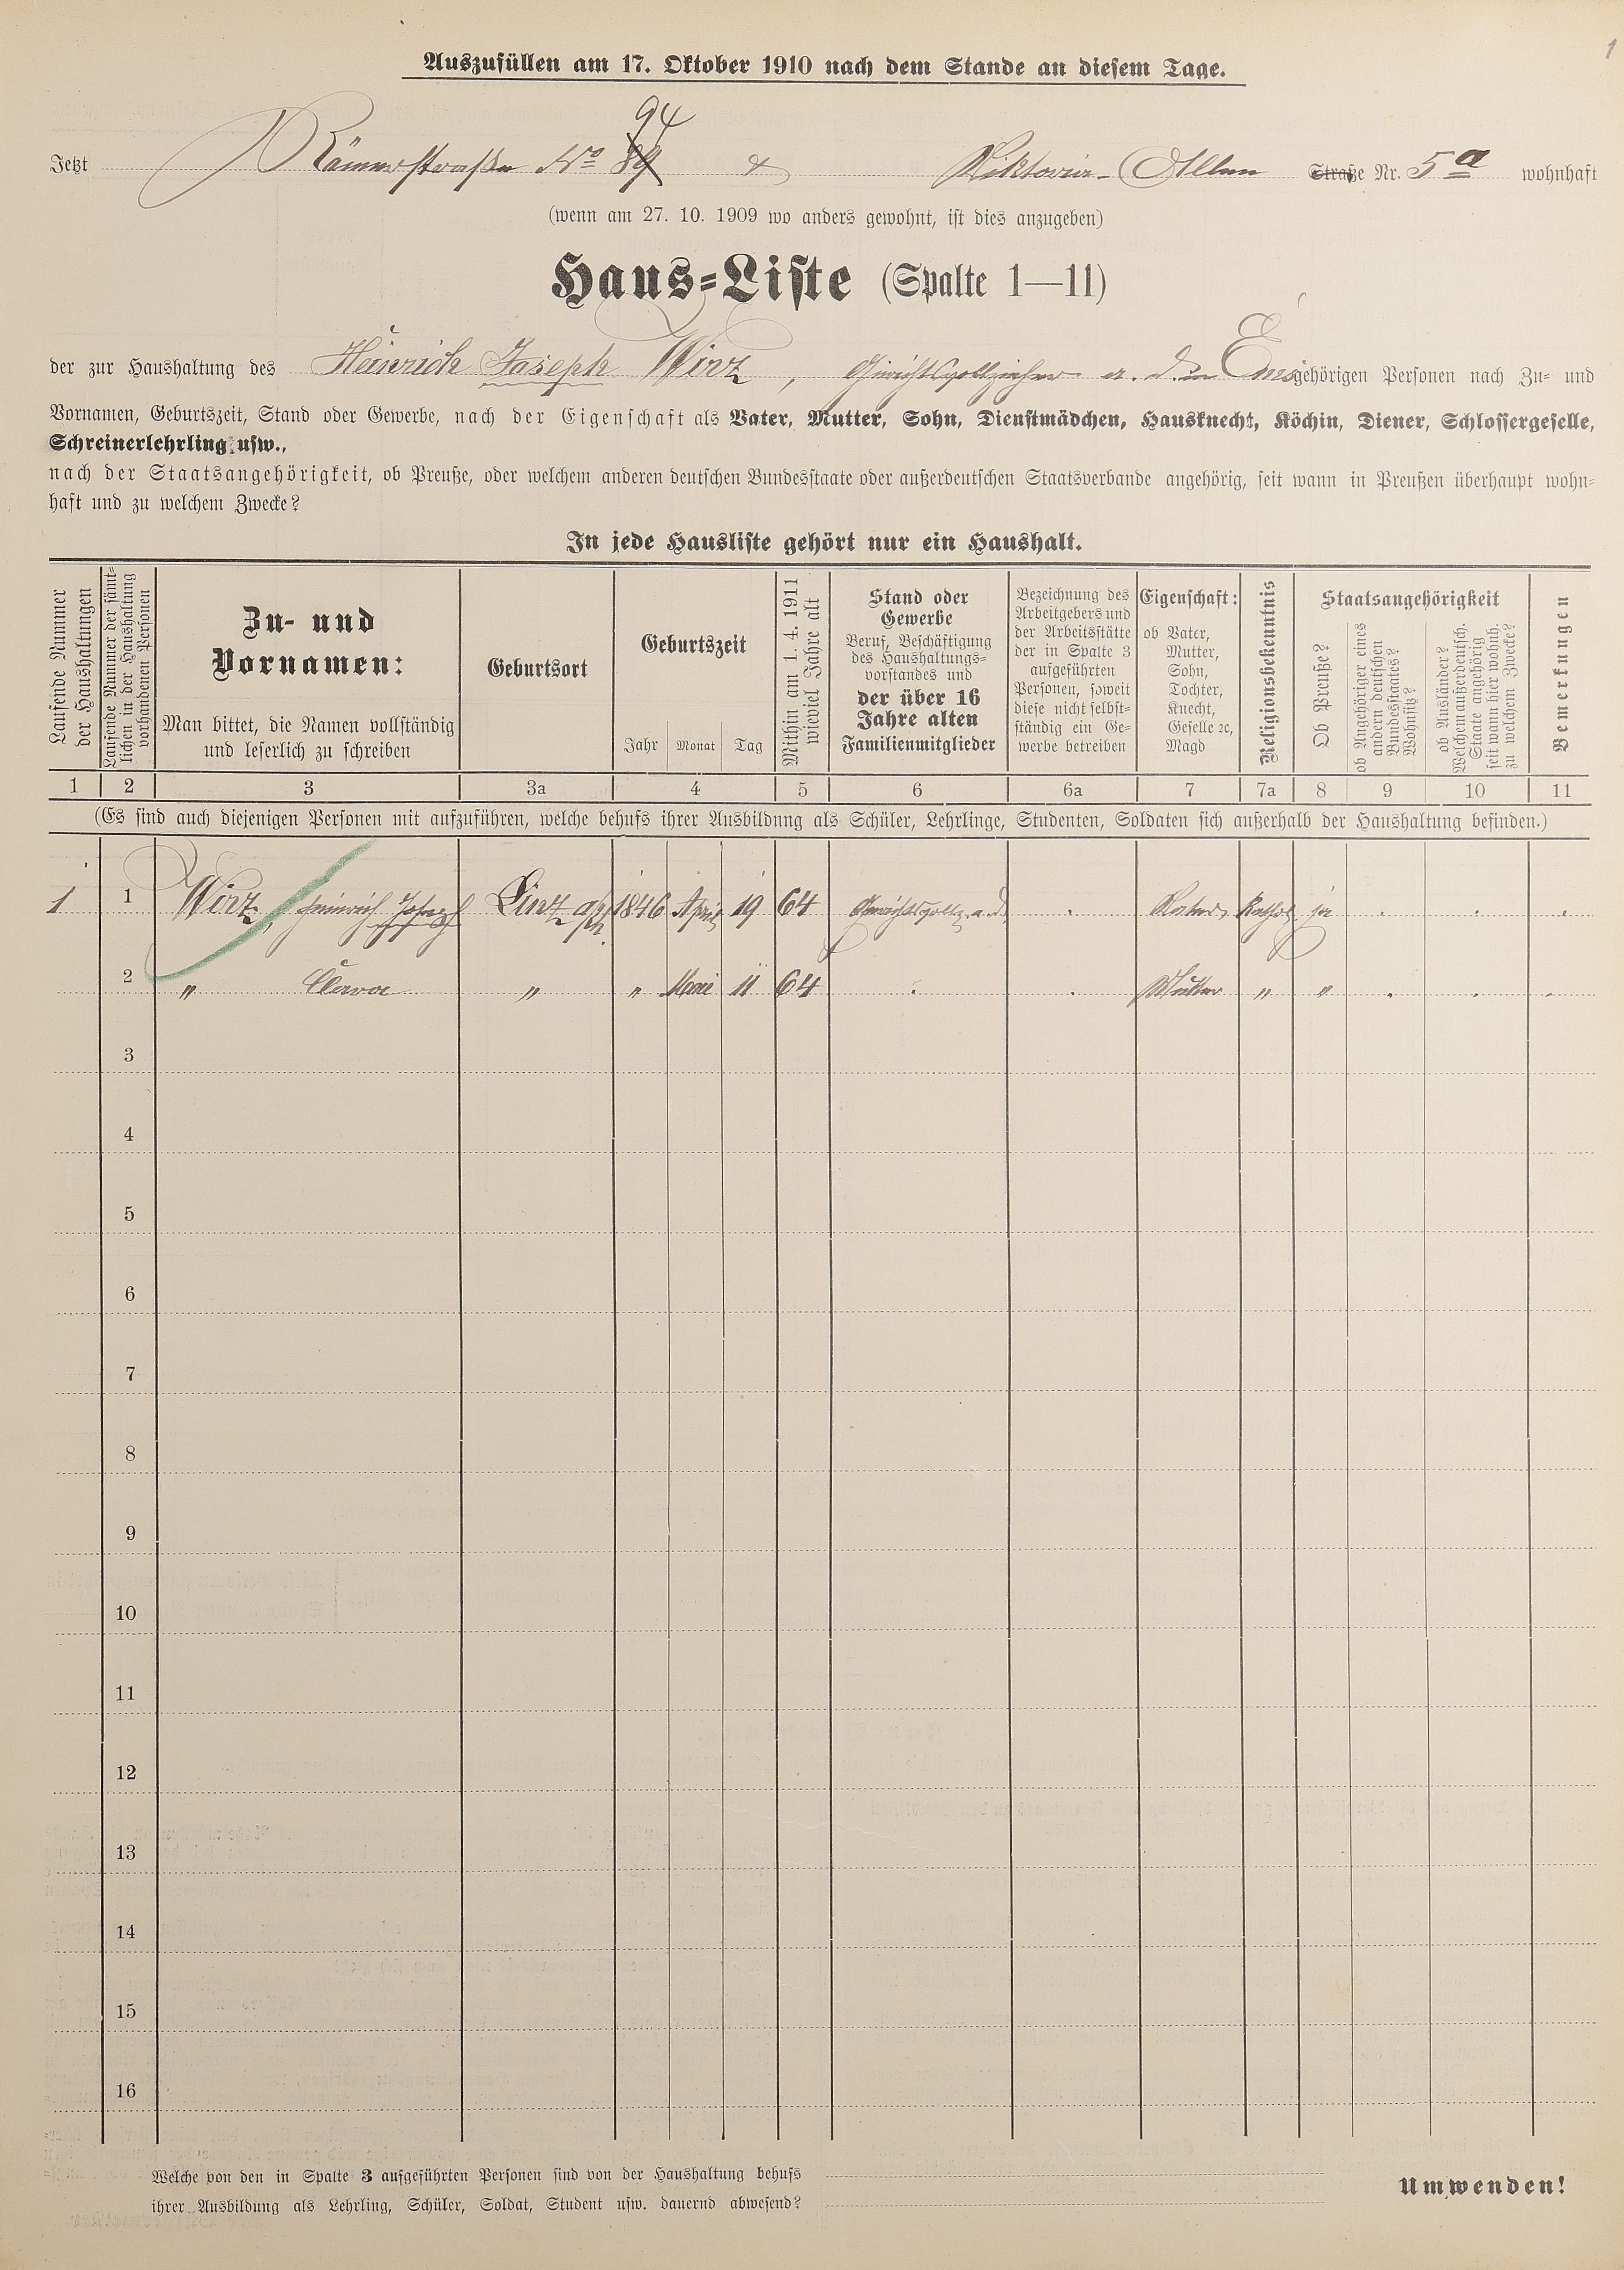 1
Auszufüllen am 17. Oktober 1910 nach dem Stande an diesem Tage.
94
Jetzt Römerstraße No 89 & Viktoria-Allee Straße Nr. 5a wohnhaft
(wenn am 27. 10. 1909 wo anders gewohnt, ist dies anzugeben)
Haus-Liste (Spalte 1—11)
der zur Haushaltung des Heinrich Joseph Wirz, Gerichtsvollzieher a. D. in Ems gehörigen Personen nach Zu- und
Vornamen, Geburtszeit, Stand oder Gewerbe, nach der Eigenschaft als Vater, Mutter, Sohn, Dienstmädchen, Hausknecht, Köchin, Diener, Schlossergeselle,
Schreinerlehrling usw.,
nach der Staatsangehörigkeit, ob Preuße, oder welchem anderen deutschen Bundesstaate oder außerdeutschen Staatsverbande angehörig, seit wann in Preußen überhaupt wohn-
haft und zu welchem Zwecke?
In jede Hausliste gehört nur ein Haushalt.
Laufende Nummer
der Haushaltungen
Laufende Nummer der sämt-
lichen in der Haushaltung
vorhandenen Personen
Zu- und
Vornamen:
Man bittet, die Namen vollständig
und leserlich zu schreiben
Geburtsort
Geburtszeit
Jahr Monat Tag
Mithin am 1. 4. 1911
wieviel Jahre alt
Stand oder
Gewerbe
Beruf, Beschäftigung
des Haushaltungs-
vorstandes und
der über 16
Jahre alten
Familienmitglieder
Bezeichnung des
Arbeitgebers und
der Arbeitsstätte
der in Spalte 3
aufgeführten
Personen, soweit
diese nicht selbst-
ständig ein Ge-
werbe betreiben
Eigenschaft:
ob Vater,
Mutter,
Sohn,
Tochter,
Knecht,
Geselle ꝛc,
Magd
Religionsbekenntnis
Staatsangehörigkeit
Ob Preuße?
ob Angehöriger eines
andern deutschen
Bundesstaates?
Wohnsitz?
ob Ausländer?
Welchem außerdeutsch.
Staate angehörig
seit wann hier wohnh.
zu welchem Zwecke?
Bemerkungen
1 2 3 3a 4 5 6 6a 7 7a 8 9 10 11
(Es sind auch diejenigen Personen mit aufzuführen, welche behufs ihrer Ausbildung als Schüler, Lehrlinge, Studenten, Soldaten sich außerhalb der Haushaltung befinden.)
1 1 Wirz, Heinrich Joseph Linz a/Rh. 1846 April 19 64 Gerichtsvollz. a. D. Vater Kathol. ja
2 " Clara " " Mai 11 64 Mutter " "
3
4
5
6
7
8
9
10
11
12
13
14
15
16
Welche von den in Spalte 3 aufgeführten Personen sind von der Haushaltung behufs
ihrer Ausbildung als Lehrling, Schüler, Soldat, Student usw. dauernd abwesend?
Umwenden!